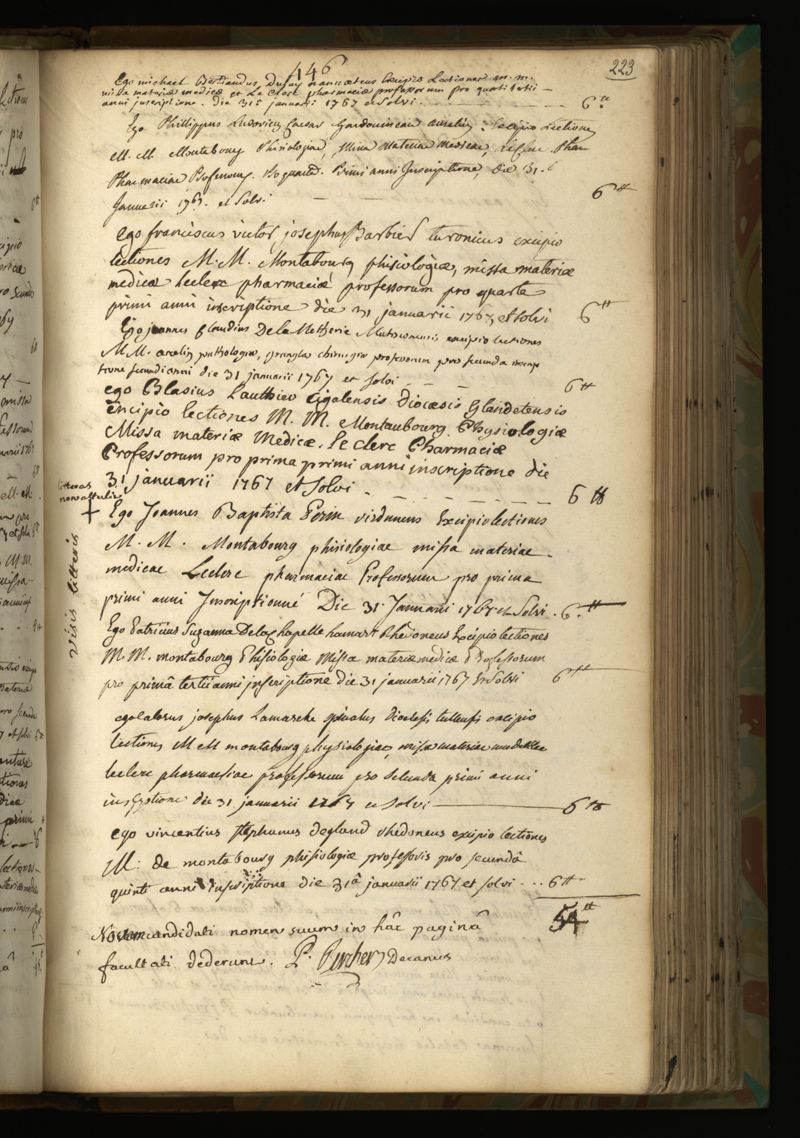 446
223
Ego michael Dufay nannœteus Excipio Lectiones m. m.
missa materiæ medicæ et Le Clerc pharmaciæ professorum pro quarti
anni inscriptione. die 31ª januarii 1767 et Solvi. 6 tt
Ego Phillippus Ludovicus Cæsar Excipio Lectiones
M. M. Montabourg Phisiologiæ, Missa Materiæ Medicæ, Leclerc
Pharmaciæ Professorum. Pro quarta Primi anni Inscriptione, Die 31.
Januarii 1767. et Solvi. 6 tt
ego franciscus victor josephus Barbier turonicus excipio
lectiones M. M. Montabourg phisiologiæ, missa materiæ
medicæ leclerc pharmaciæ professorum pro quarta
primi anni inscriptione die 31 januarii 1767 et solvi 6 tt
Ego joannes Claudius De la Metherie excipio lectiones
M. M. pathologiæ, chirurgiæ professorum pro secunda
secundi anni die 31 januarii 1767 et Solvi 6 tt
ego Blasius Lauthier diocæsis Glandetensis
Excipio lectiones M. M. Montaubourg Physiologiæ
Missa materiæ Medicæ. le clerc Pharmaciæ
Professorum pro prima primi anni inscriptione die
31 januarii 1767 et solvi. 6 tt
litteras
non attulit
+
Visis litteris
Ego Joannes Baptista virdunens Excipio lectiones
M. M. Montabourg phisiologiae missa materiae
medicae Leclerc pharmaciae Professorum pro prima
primi anni Inscriptionne Die 31 Januarii 1767 et Solvi. 6. tt
Ego Patricius Suzanna Delachapelle Rhedoneus Excipio lectiones
M. M. montabourg Phisiologiæ Missa materiæ medicæ Professorum
pro primâ tertii anni inscriptione die 31 januarii 1767 Et Solvi 6 tt
josephus Lamarche diocesis tullensis excipio
lectiones M M montabourg physiologiae, missa materiae
leclerc pharmaciae professorum pro secunda primi anni
inscriptione die 31 januarii 1767 et solvi 6 tt
ego vincentius stephanus degland rhedoneus excipio lectiones
M. de montabourg phisiologiæ professoris pro secundâ
quinti anni inscriptione die 31â januarii 1767 et solvi... 6 tt
54 tt
Novem candidati nomen suum in hâc paginâ
facultati dederunt. Decanus